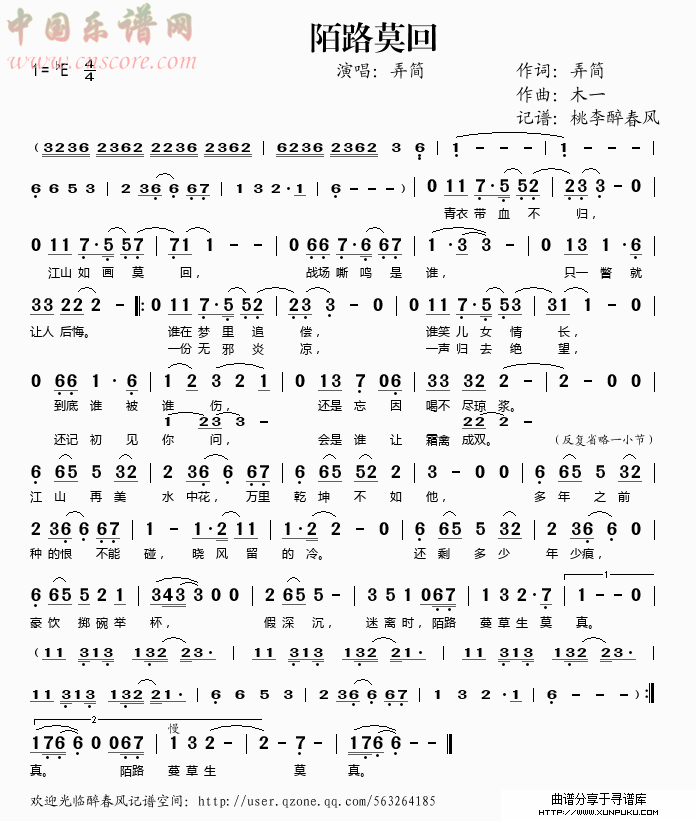 中国乐谱网
www.cnscore.com
陌路莫回
1=♭E 4/4
演唱：弄简
作词：弄简
作曲：木一
记谱：桃李醉春风
(3236 2362 2236 2362 | 6236 2362 3 6 | 1 - - - | 1 - - -
6 6 5 3 | 2 36 6 67 | 1 3 2·1 | 6 - - -) | 0 11 7·5 52 | 23 3 - 0 |
青衣带血不 归，
0 11 7·5 57 | 71 1 - - | 0 66 7·6 67 | 1·3 3 - - | 0 13 1·6 |
江山如画莫 回， 战场嘶鸣是 谁， 只一瞥就
33 22 2 - |: 0 11 7·5 52 | 23 3 - 0 | 0 11 7·5 53 | 31 1 - 0 |
让人后悔。 谁在梦里追 偿， 谁笑儿女情 长，
一份无邪炎 凉， 一声归去绝 望，
0 66 1·6 | 1 2 3 2 1 | 0 13 7 06 | 33 32 2 - | 2 - 0 0 |
到底谁被 谁 伤， 还是忘因 喝不尽琼浆。
1 23 3 - 22 2 -
还记初见 你 问， 会是谁让 霜禽成双。 (反复省略一小节)
6 65 5 32 | 2 36 6 67 | 6 65 5 32 | 2 36 6 0 | 6 65 5 32 |
江山再美 水中花，万里 乾坤不如 他， 多年之前
2 36 6 67 | 1 - 1·2 11 | 1·2 2 - 0 | 6 65 5 32 | 2 36 6 0 |
种的恨 不能 碰， 晓风留 的冷。 还剩多少 年少痕，
6 65 5 21 | 343 3 0 0 | 2 65 5 - | 3 5 1 067 | 1 3 2·7 | 1 - - 0 |
1
豪饮掷碗举 杯， 假深沉， 迷离时，陌路 蔓草生莫 真。
(11 313 132 213 | 11 313 132 213 | 11 313 132 213 |
11 313 132 21· | 6 6 5 3 | 2 36 6 67 | 1 3 2·1 | 6 - - -) :|
2
慢
176 6 0 067 | 1 3 2 - | 2 - 7 - | 176 6 - - ||
真。 陌路 蔓草生 莫 真。
欢迎光临醉春风记谱空间：http://user.qzone.qq.com/563264185
曲谱分享于寻谱库
HTTP://WWW.XUNPUKU.COM